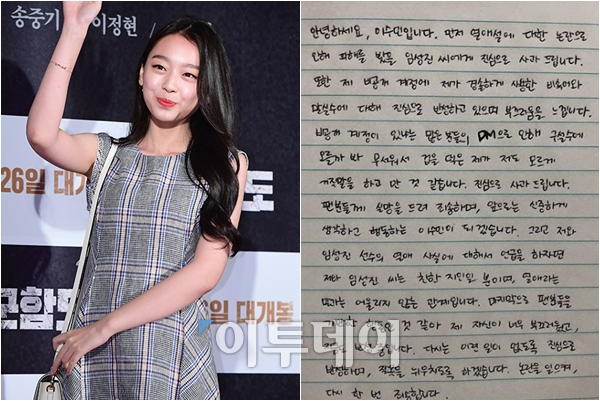 송중기 이정현 /
26일 대개
함도
26일 대개봉
군함도
이투데이
안녕하세요, 이수민입니다. 먼저 열애설에 대한 논란으로
인해 피해를 받을 임성진 씨에게 진심으로 사과 드립니다.
또한 제 비공개 계정에 제가 경솔하게 사용한 비속어와
말실수에 대해 진심으로 반성하고 있으며 부끄러움을 느낍니다.
비공개 계정이 있냐는 많은 분들의 DM으로 인해 구설수에
오를까 봐 무서워서 겁을 먹은 제가 저도 모르게
거짓말을 하고 만 것 같습니다. 진심으로 사과 드립니다.
팬분들께 실망을 드려 죄송하며, 앞으로는 신중하게
생각하고 행동하는 이수민이 되겠습니다. 그리고 저와
임성진 선수의 열애 사실에 대해서 언급을 하자면
저와 임성진 씨는 친한 지인일 분이며, 열애라는
말과는 어울리지 않은 관계입니다. 마지막으로 팬분들을
것 같아 제 자신이 너무 부끄러웠고,
반성합니다. 다시는 이런 일이 없도록 진심으로
반성하며, 잘못을 뉘우치도록 하겠습니다. 논란을 일으켜,
다시 한 번 죄송합니다.